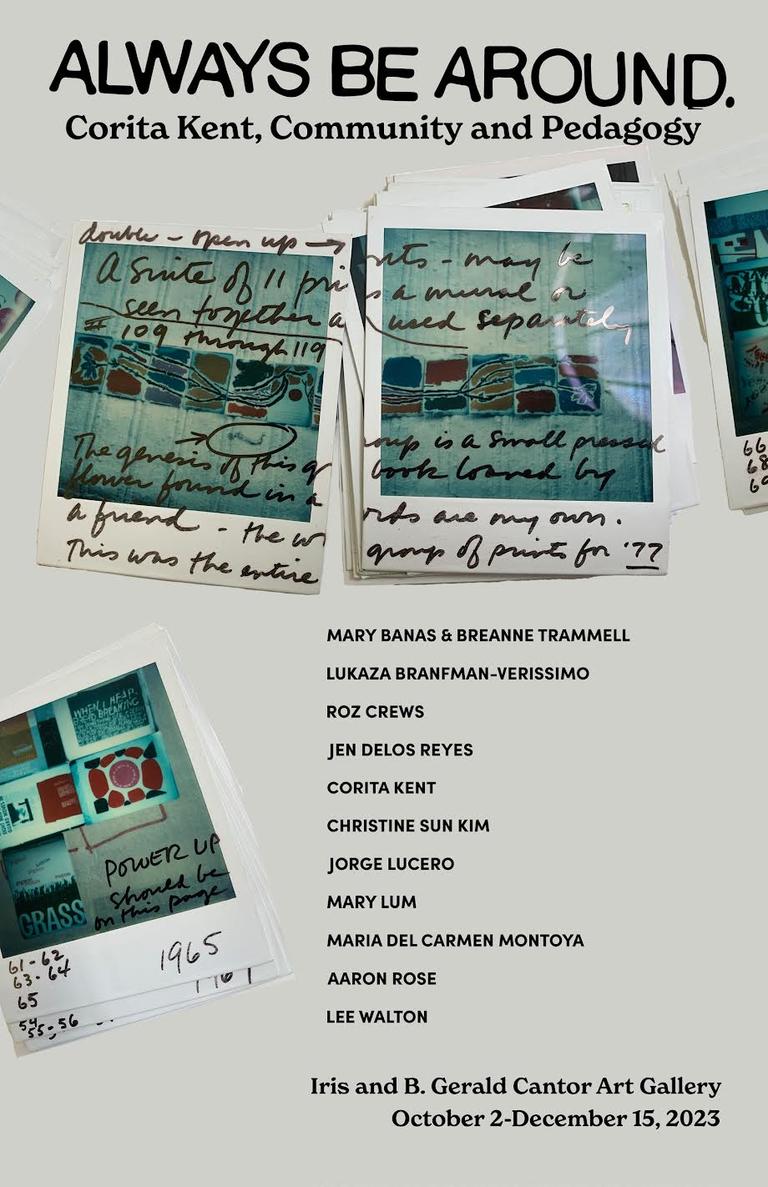 ALWAYS BE AROUND.
Corita Kent, Community and Pedagogy
double - open up →
A Suite of 11 prints - may be
seen together as a mural or
used separately
# 109 through 119
The genesis of this group is a small pressed
flower found in a book loaned by
a friend - the words are my own.
This was the entire group of prints for '77
66
68
69
WHEN I HEAR
BREAKING
POWER UP
should be
on this page
GRASS
61-62
63-64
65
1965
54
55-56
MARY BANAS & BREANNE TRAMMELL
LUKAZA BRANFMAN-VERISSIMO
ROZ CREWS
JEN DELOS REYES
CORITA KENT
CHRISTINE SUN KIM
JORGE LUCERO
MARY LUM
MARIA DEL CARMEN MONTOYA
AARON ROSE
LEE WALTON
Iris and B. Gerald Cantor Art Gallery
October 2-December 15, 2023